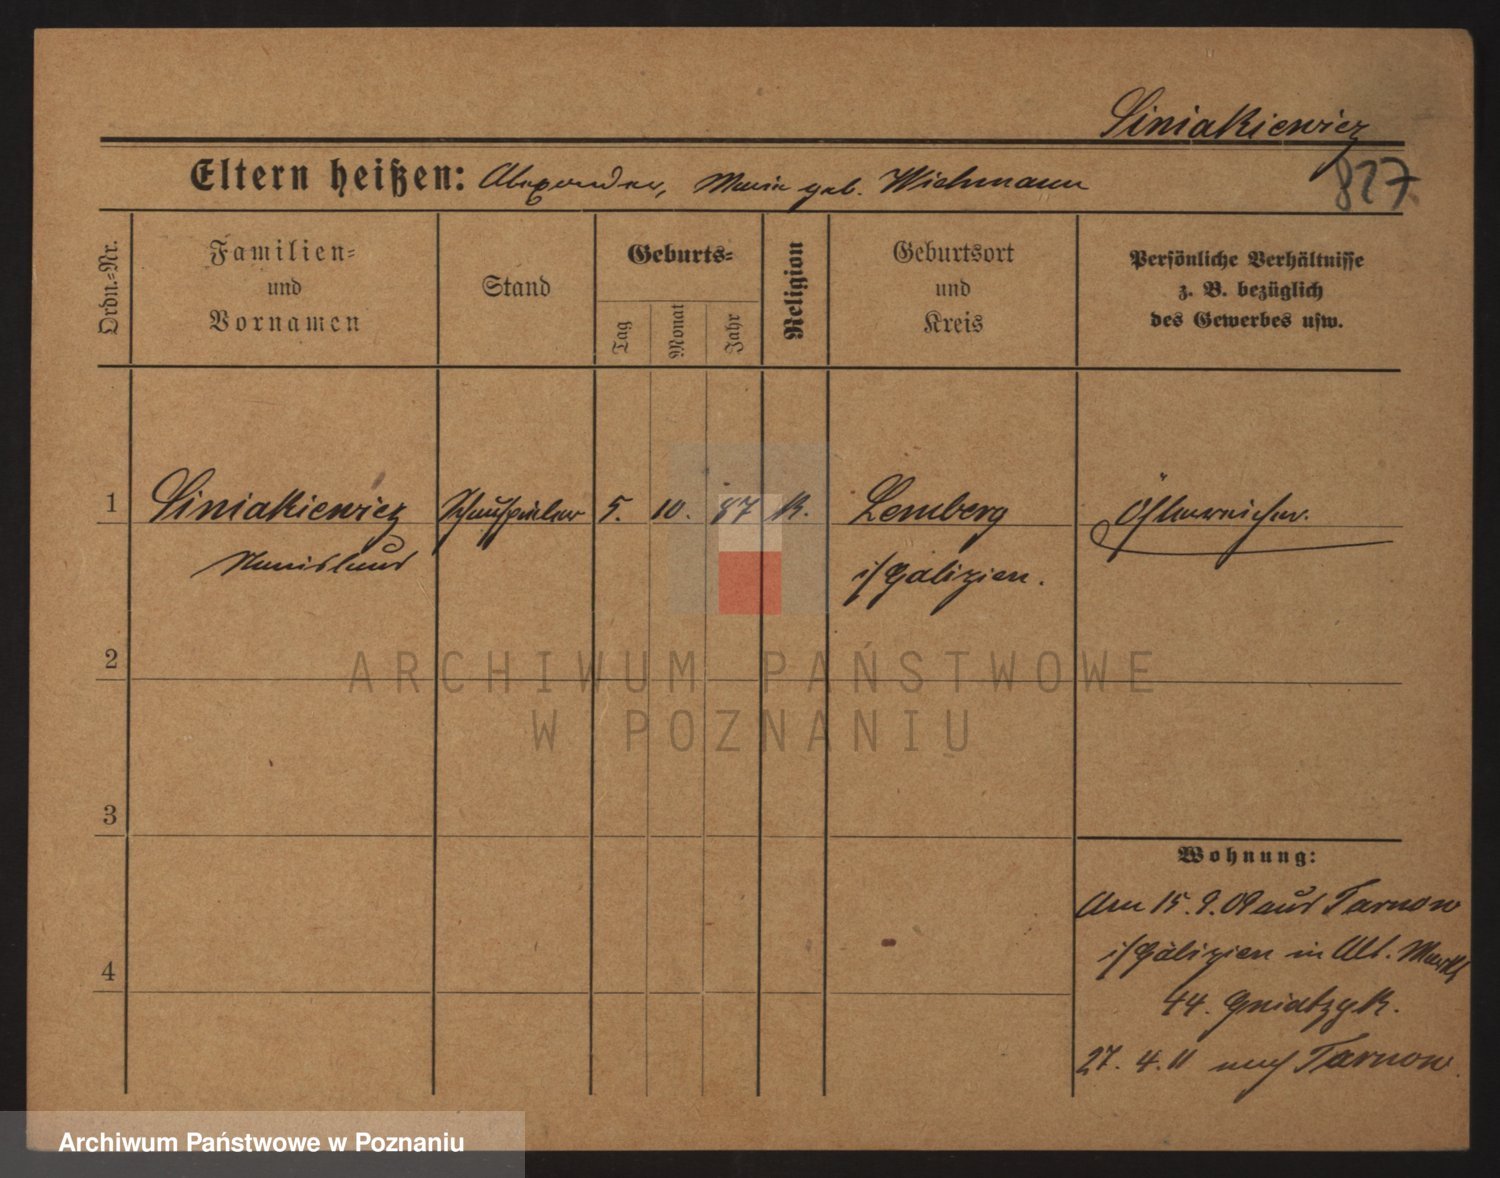 Siniakiewicz
827
Eltern heißen: Alexander, Marie geb. Wichmann
Ordn.-Nr.
Familien=
und
Vornamen
Stand
Geburts=
Tag
Monat
Jahr
Religion
Geburtsort
und
Kreis
Persönliche Verhältnisse
z. B. bezüglich
des Gewerbes usw.
1 Siniakiewicz Schauspieler 5. 10. 87 K. Lemberg Österreicher.
Stanislaus i/Galizien.
2
ARCHIWUM PAŃSTWOWE
W POZNANIU
3
Wohnung:
Am 15. 9. 09 aus Tarnow
i/Galizien in Alt. Markt
4
44. Gniatzyk.
27. 4. 11 nach Tarnow.
Archiwum Państwowe w Poznaniu